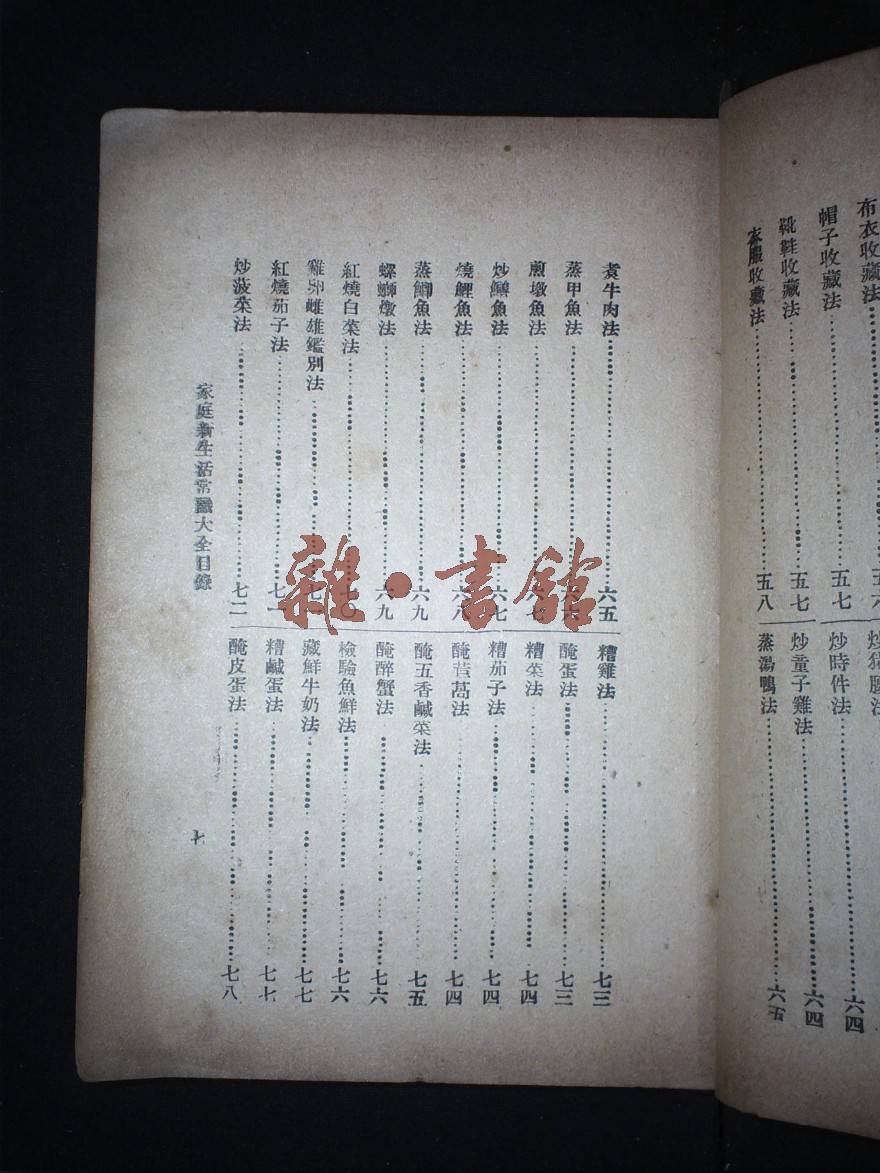 布衣收藏法
帽子收藏法……五七
靴鞋收藏法……五七
衣服收藏法……五八
炒時件法……六四
炒童子雞法……六四
蒸湯鴨法……六五
煑牛肉法……六五
蒸甲魚法……六六
煎墩魚法……六七
炒鱔魚法……六七
燒鯉魚法……六八
蒸鯽魚法……六九
螺螄燉法……六九
紅燒白菜法……七〇
雞卵雌雄鑑別法
紅燒茄子法……七一
炒菠菜法……七二
糟雞法……七三
醃蛋法……七三
糟菜法……七四
糟茄子法……七四
醃萵法……七四
醃五香鹹菜法……七五
醃醉蟹法……七六
檢驗魚鮮法……七六
藏鮮牛奶法……七七
糟鹹蛋法……七七
醃皮蛋法……七八
家庭新生活常識大全目錄
七
雜·書館